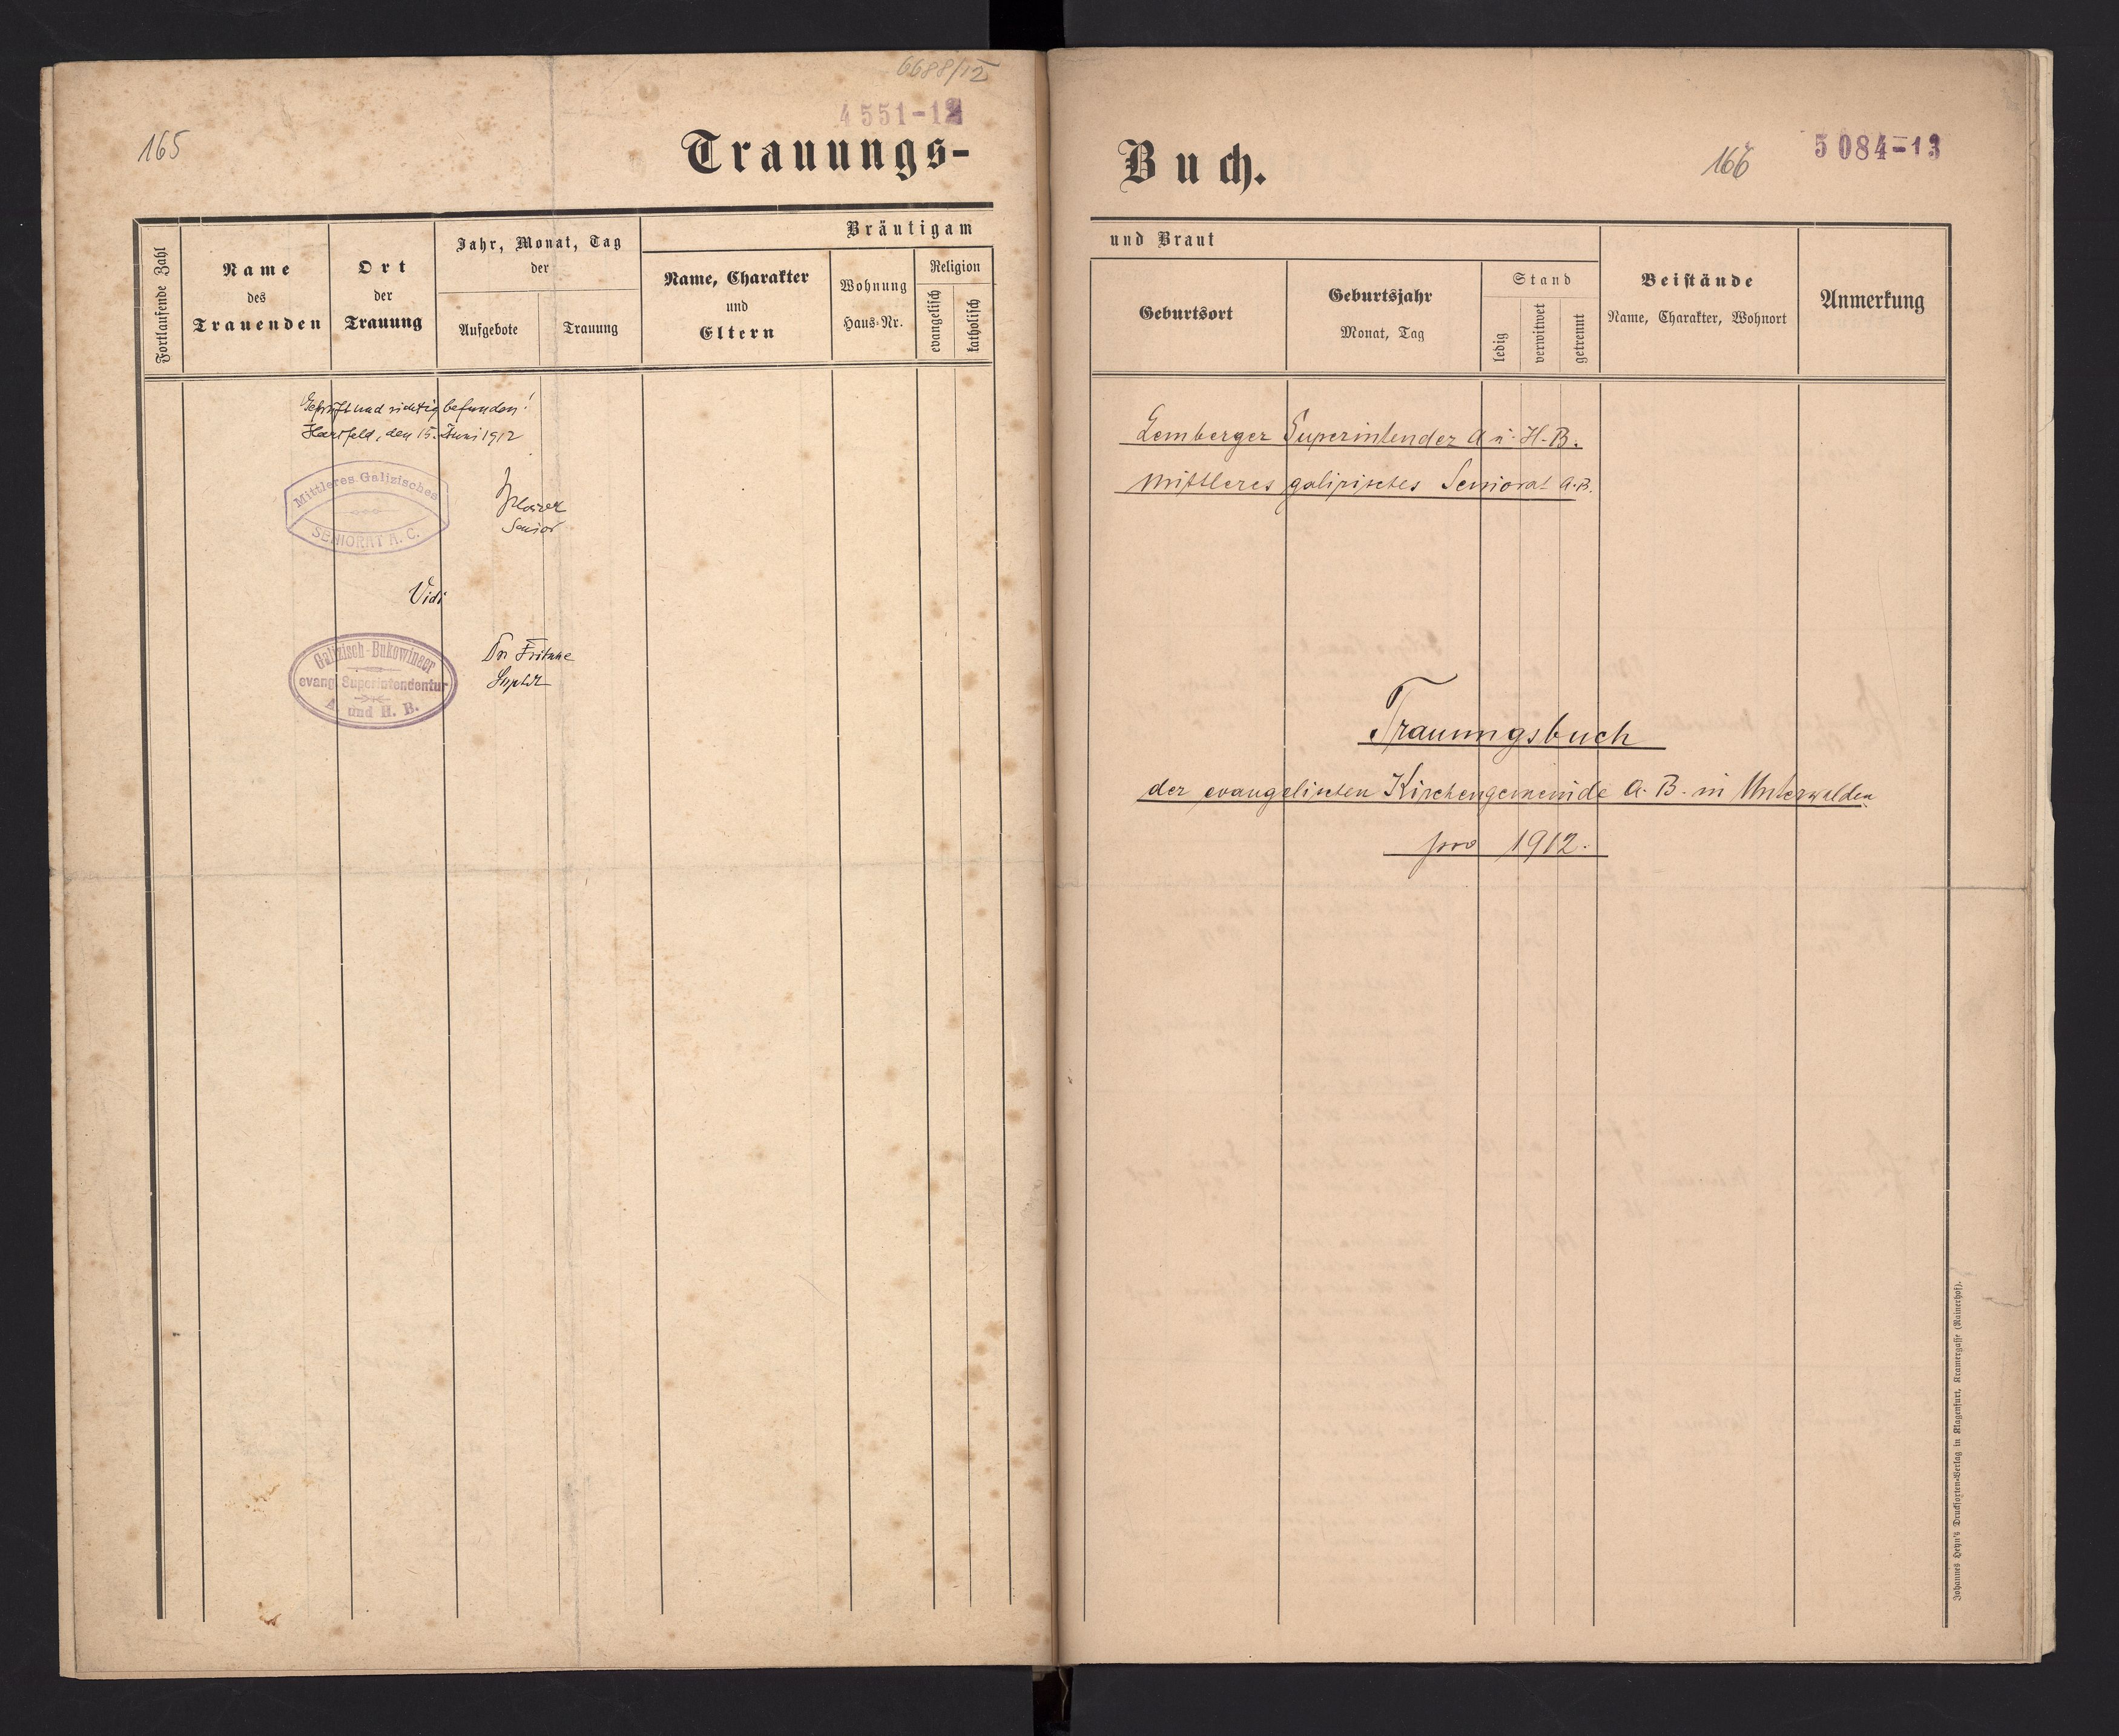 6688/12
4551-12
165
Trauungs-
Fortlaufende Zahl
Name
des
Trauenden
Ort
der
Trauung
Jahr, Monat, Tag
der
Aufgebote
Trauung
Bräutigam
Name, Charakter
und
Eltern
Wohnung
Haus-Nr.
Religion
evangelisch
katholisch
Geprüft und richtig befunden!
Hartfeld, den 15. Juni 1912
Mittleres Galizisches
SENIORAT A. C.
Senior
Vidi
Galizisch-Bukowineer
evang. Superintendentur
A. und H. B.
Dr Fritsche
Suptdt
Buch.
166
5084-13
und Braut
Geburtsort
Geburtsjahr
Monat, Tag
Stand
ledig
verwitwet
getrennt
Beistände
Name, Charakter, Wohnort
Anmerkung
Lemberger Superintendez A u. H. B.
Mittleres galizisches Seniorat A. B.
Trauungsbuch
der evangelischen Kirchengemeinde A. B. in Unterwalden
pro 1912.
Johannes Heyn's Drucksorten-Verlag in Klagenfurt, Kramergasse (Rainerhof).